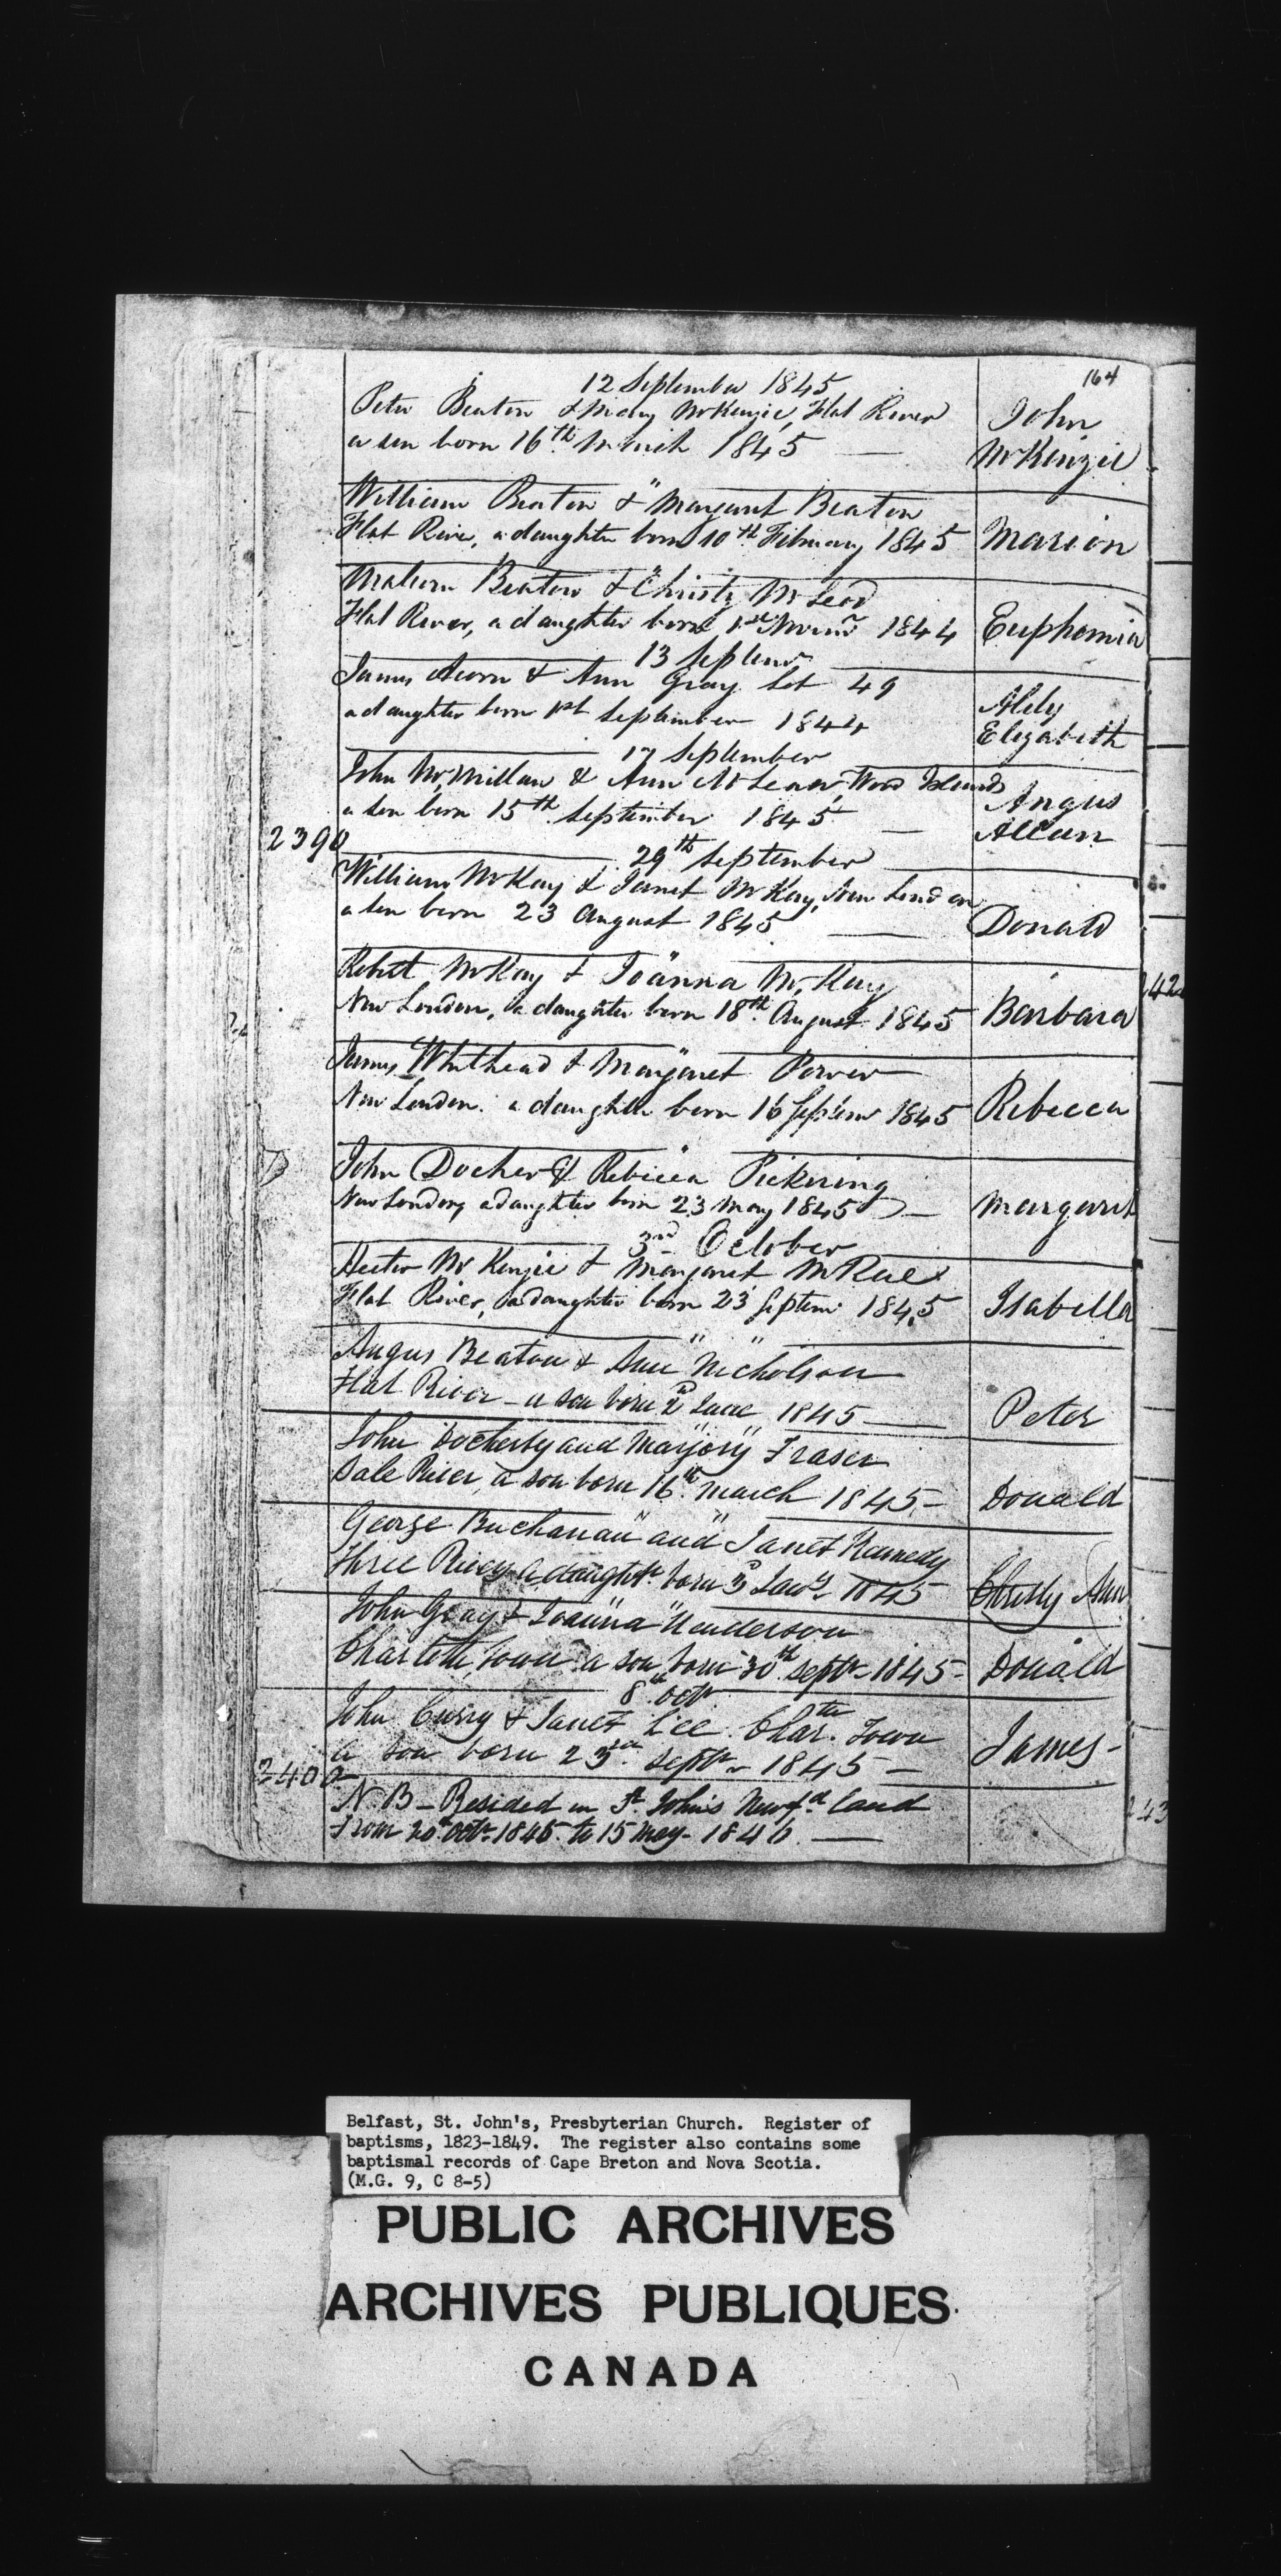 164
12 September 1845
Peter Beaton & Mary McKenzie, Flat River
a son born 16th March 1845 —
John
McKenzie
William Beaton & Margaret Beaton
Flat River, a daughter born 10th February 1845
Marion
Beaton & Christy McLeod
Flat River, a daughter born 1st 1844
Euphemia
13 Septemr
James Acorn & Ann Gray Lot 49
a daughter born 1st September 1844
Elizabeth
17 September
John McMillan & Ann McLean, Wood Islands
a son born 15th September 1845 —
Angus
Allan
2390
29th September
William McKay & Janet McKay, New London
a son born 23 August 1845 —
Donald
Robert McKay & Joanna McKay
New London, a daughter born 18th August 1845
Barbara
James Whithead & Margaret
New London. a daughter born 16 Septemr 1845
Rebecca
John Docher & Rebecca Pickering
New London, a daughter born 23 May 1845 —
Margaret
3rd October
Hector McKenzie & Margaret McRae
Flat River, a daughter born 23 Septem 1845
Isabella
Angus Beaton & Ann Nicholson
Flat River – a son born 2d June 1845 —
Peter
John Docherty and Marjory Fraser
Dale River, a son born 16th March 1845 –
Donald
George Buchanan and Janet Kennedy
Three Rivers a daughtr. born 3d Jany 1845
Christy Ann
John Gray & Joanna Henderson
Charlotte Town a son born 30th Septr 1845 –
Donald
8th Octr
John Curry & Janet Lee Char.tte Town
a son born 23rd Septr 1845 –
James –
2400
N B – Resided in St. John's Newfd land
From 20th Octr 1845 to 15 May 1846 —
242
243
Belfast, St. John's, Presbyterian Church. Register of
baptisms, 1823-1849. The register also contains some
baptismal records of Cape Breton and Nova Scotia.
(M.G. 9, C 8-5)
PUBLIC ARCHIVES
ARCHIVES PUBLIQUES
CANADA